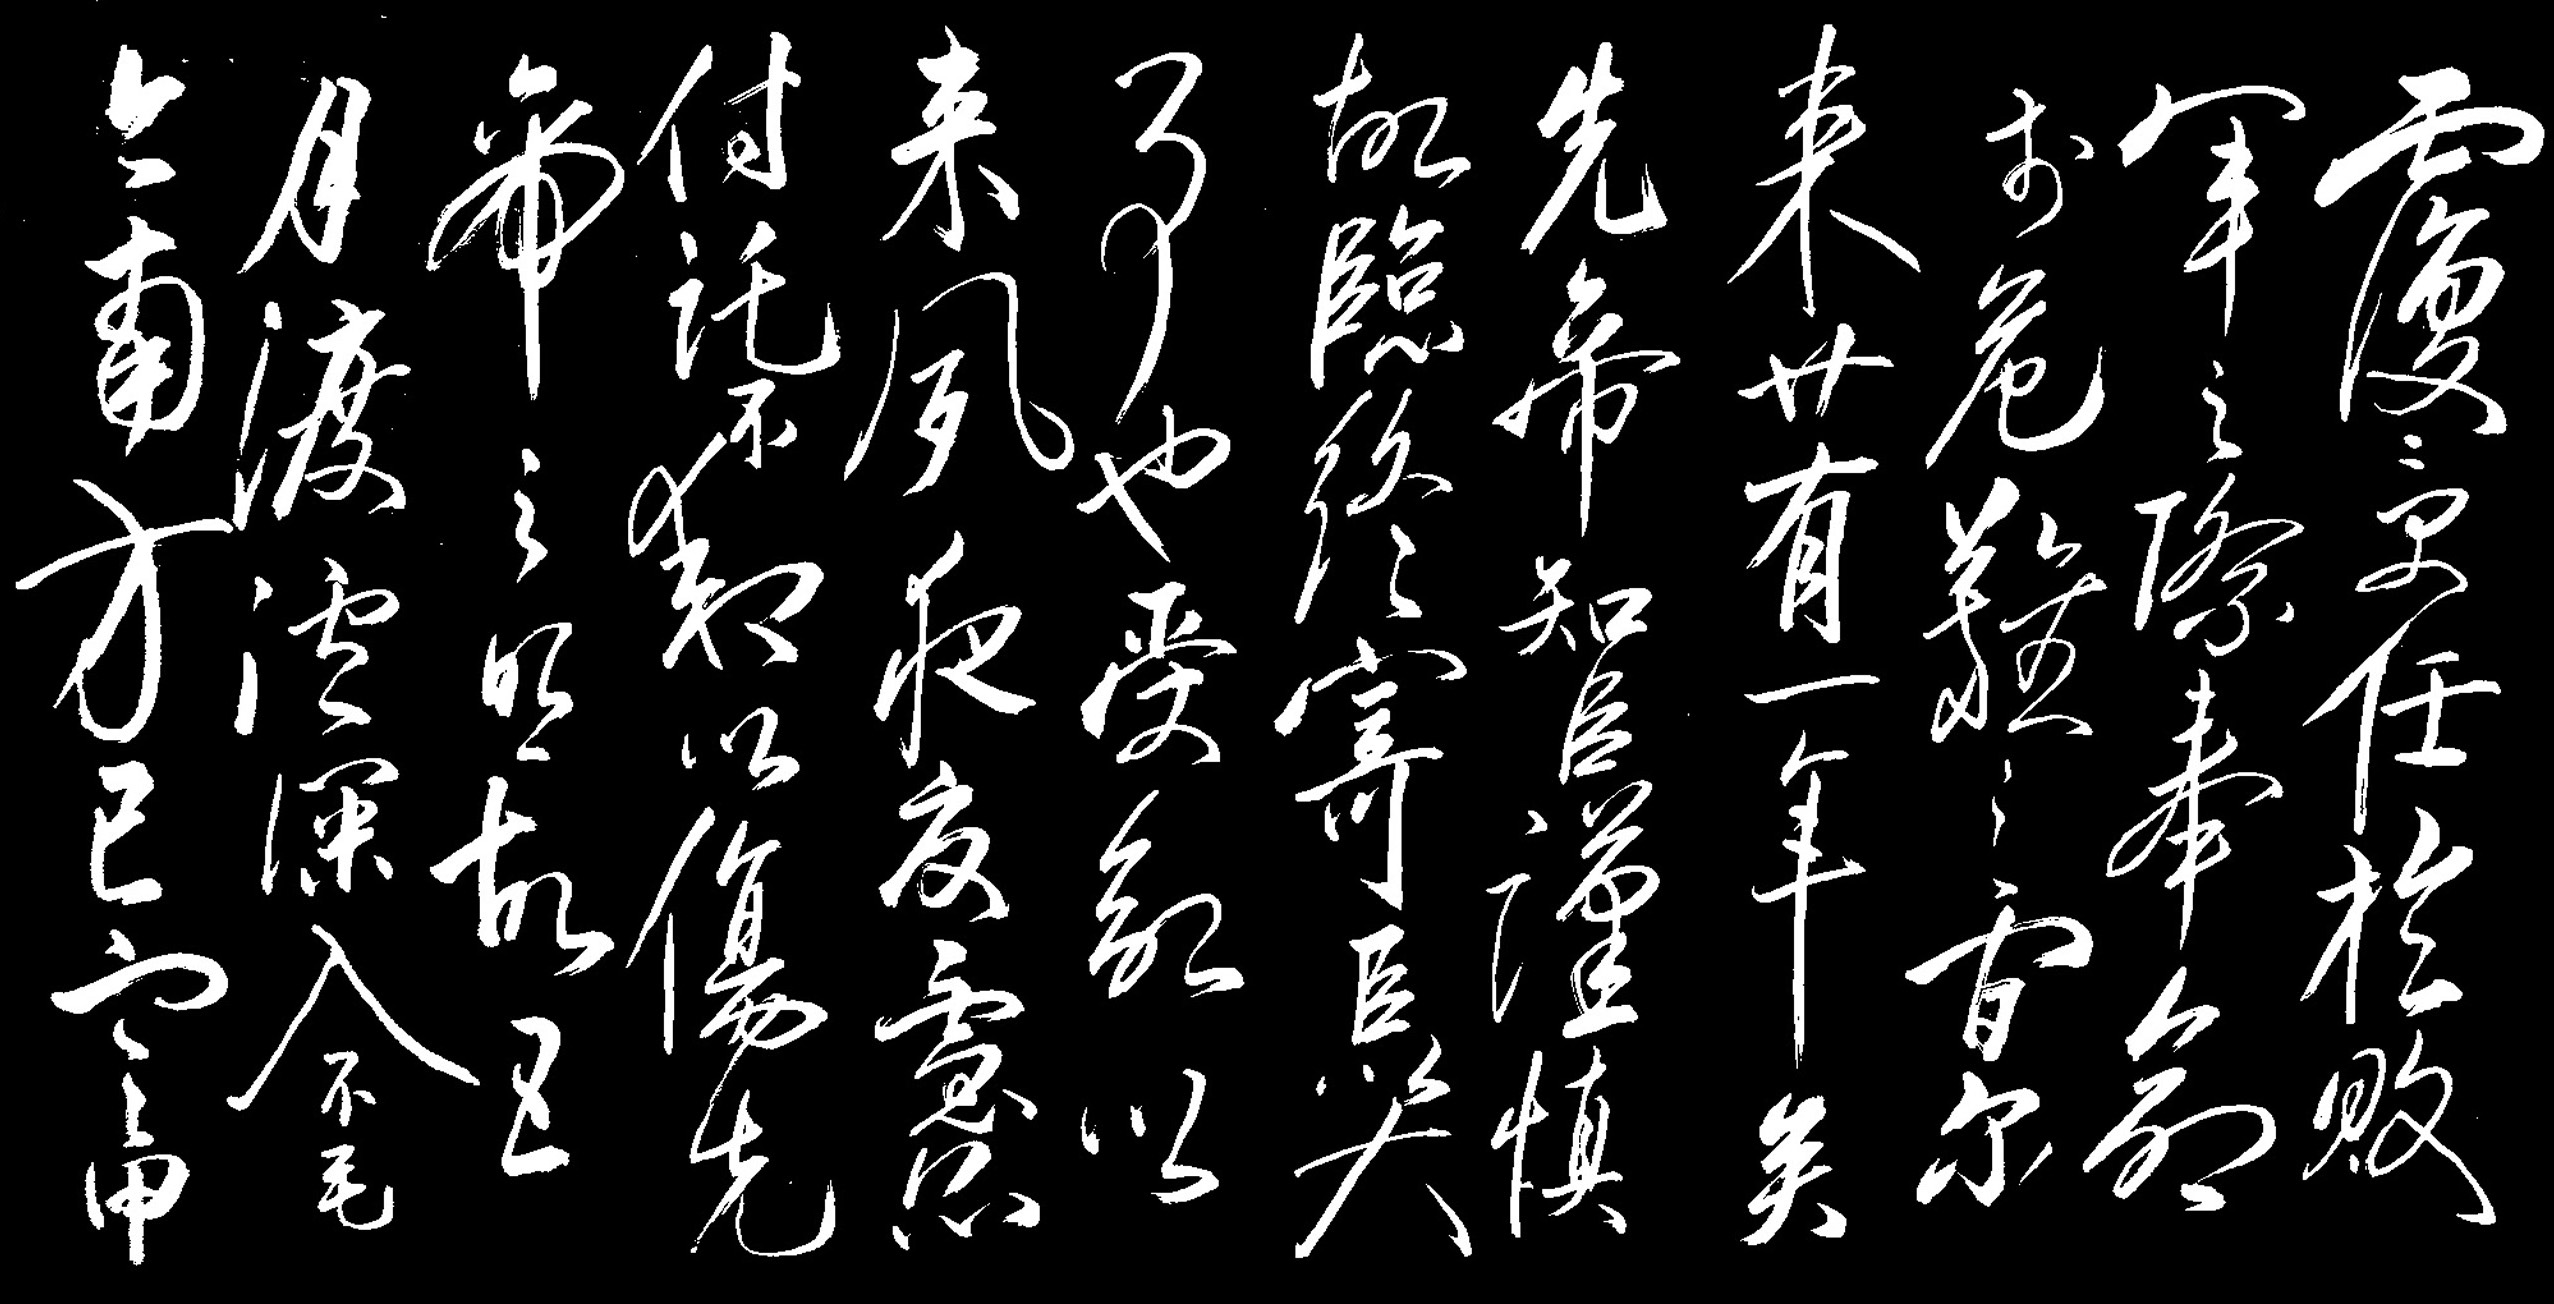 覆受任於敗
軍之際奉命
於危難之間尔
来廿有一年矣
先帝知臣謹慎
故臨終寄臣以大
事也受命以
来夙夜憂慮恐
付託不效以傷先
帝之明故五
月渡瀘深入不毛
今南方已定甲